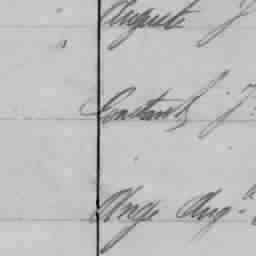 Auguste J
Constant J.
Ange Aug.